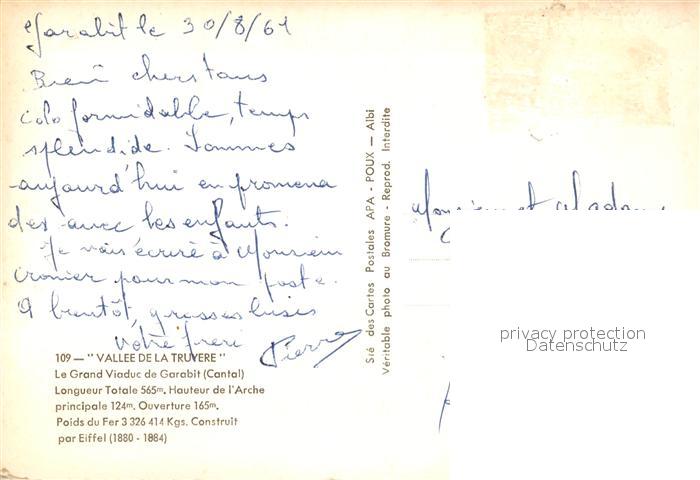 Garabit le 30/8/61
Bien chers tous
colo formidable, temps
splendide. Sommes
aujourd'hui en promena
des avec les enfants.
Je vais écrire à Monsieur
Cronier pour mon poste.
A bientôt, grosses bises
Votre frère Pierre
109 — " VALLEE DE LA TRUYERE "
Le Grand Viaduc de Garabit (Cantal)
Longueur Totale 565m. Hauteur de l'Arche
principale 124m. Ouverture 165m.
Poids du Fer 3 326 414 Kgs. Construit
par Eiffel (1880 - 1884)
Sté des Cartes Postales APA - POUX — Albi
Véritable photo au Bromure - Reprod. Interdite
Monsieur et Madame
privacy protection
Datenschutz